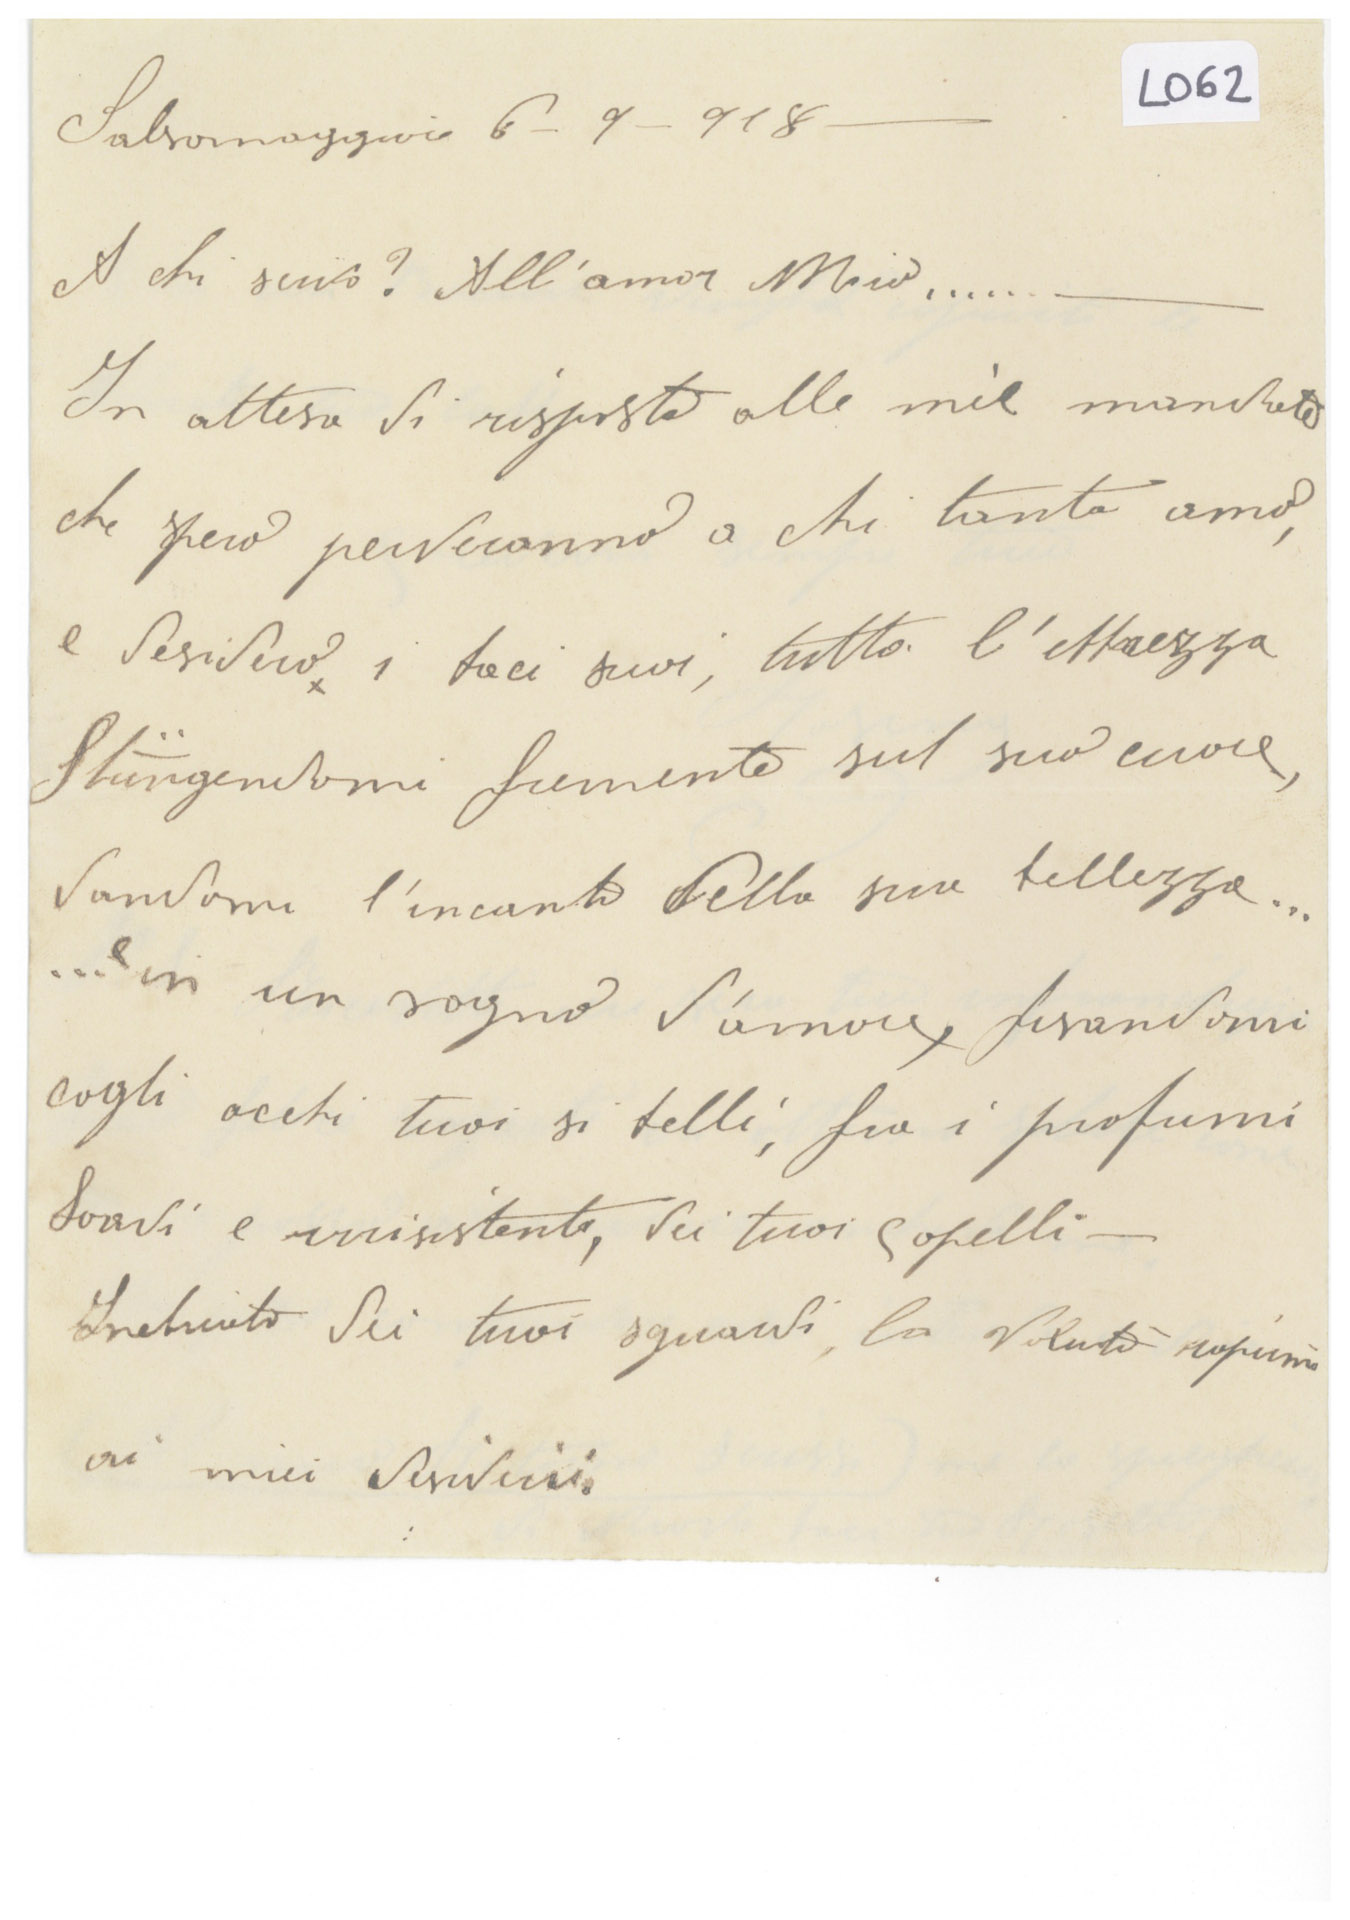 L062
Salsomaggiore 6 - 9 - 918
A chi scrivo? All'amor Mio......
In attesa di risposta alle mie mandate
che spero perverranno a chi tanto amo,
e desidero i baci suoi, tutta l'ebbrezza
Stringendomi fremente sul suo cuore,
dandomi l'incanto della sua bellezza...
...e in un sogno d'amore, fissandomi
cogli occhi tuoi si belli, fra i profumi
Soavi e irrisistente, dei tuoi capelli —
Inebriato dei tuoi sguardi, la voluta
ai miei desiderii.